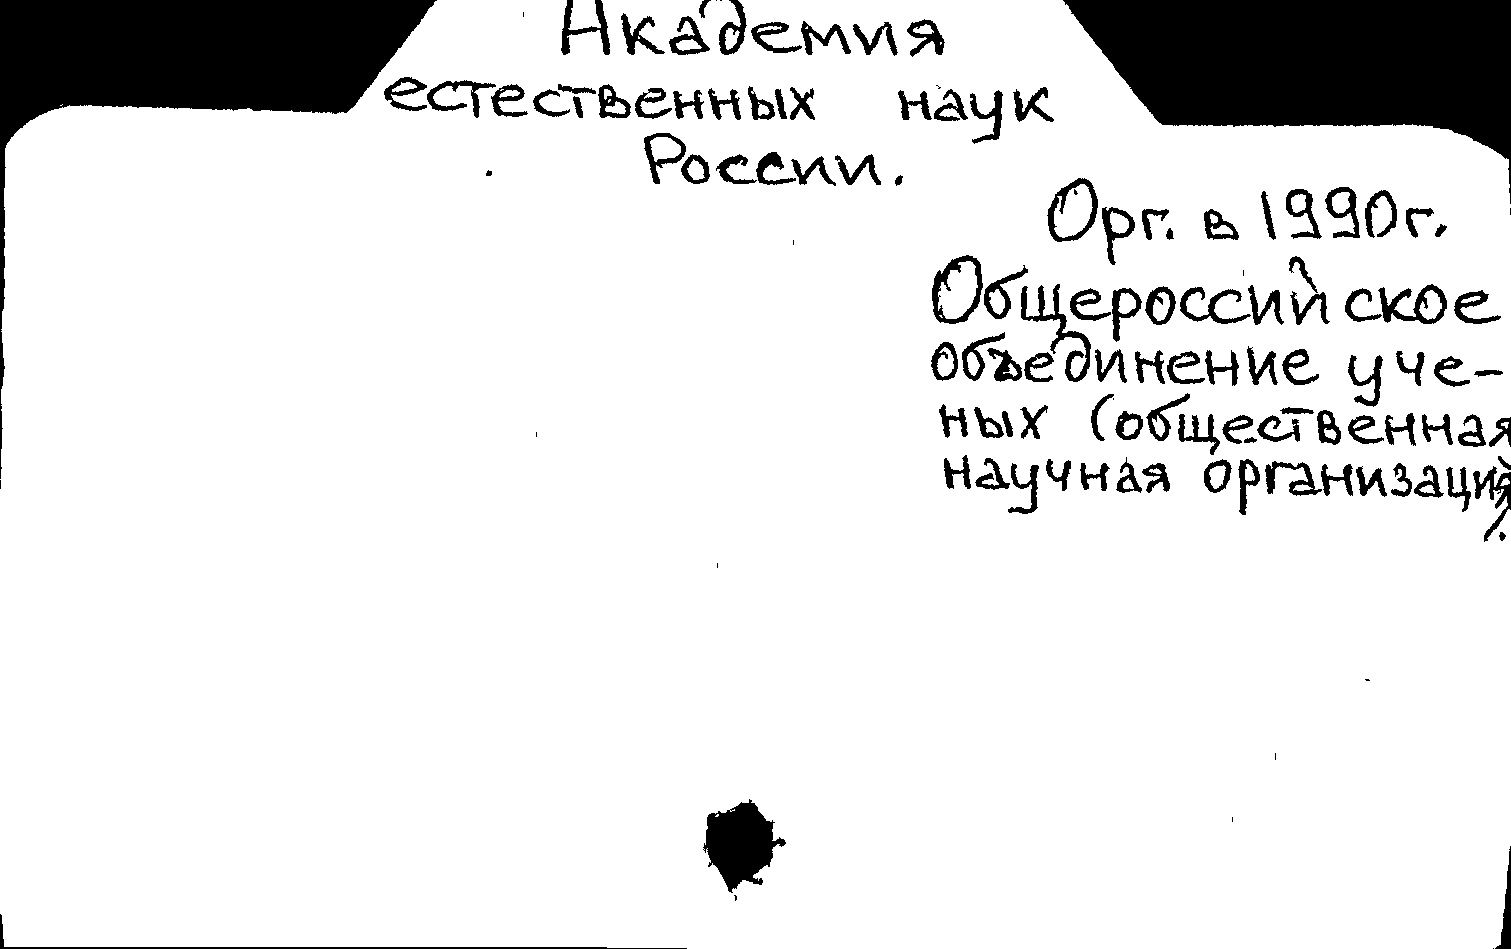 Академия
естественных наук
России.
Орг. в 1990г.
Общероссийское
объединение уче-
ных (общественная
научная организация).